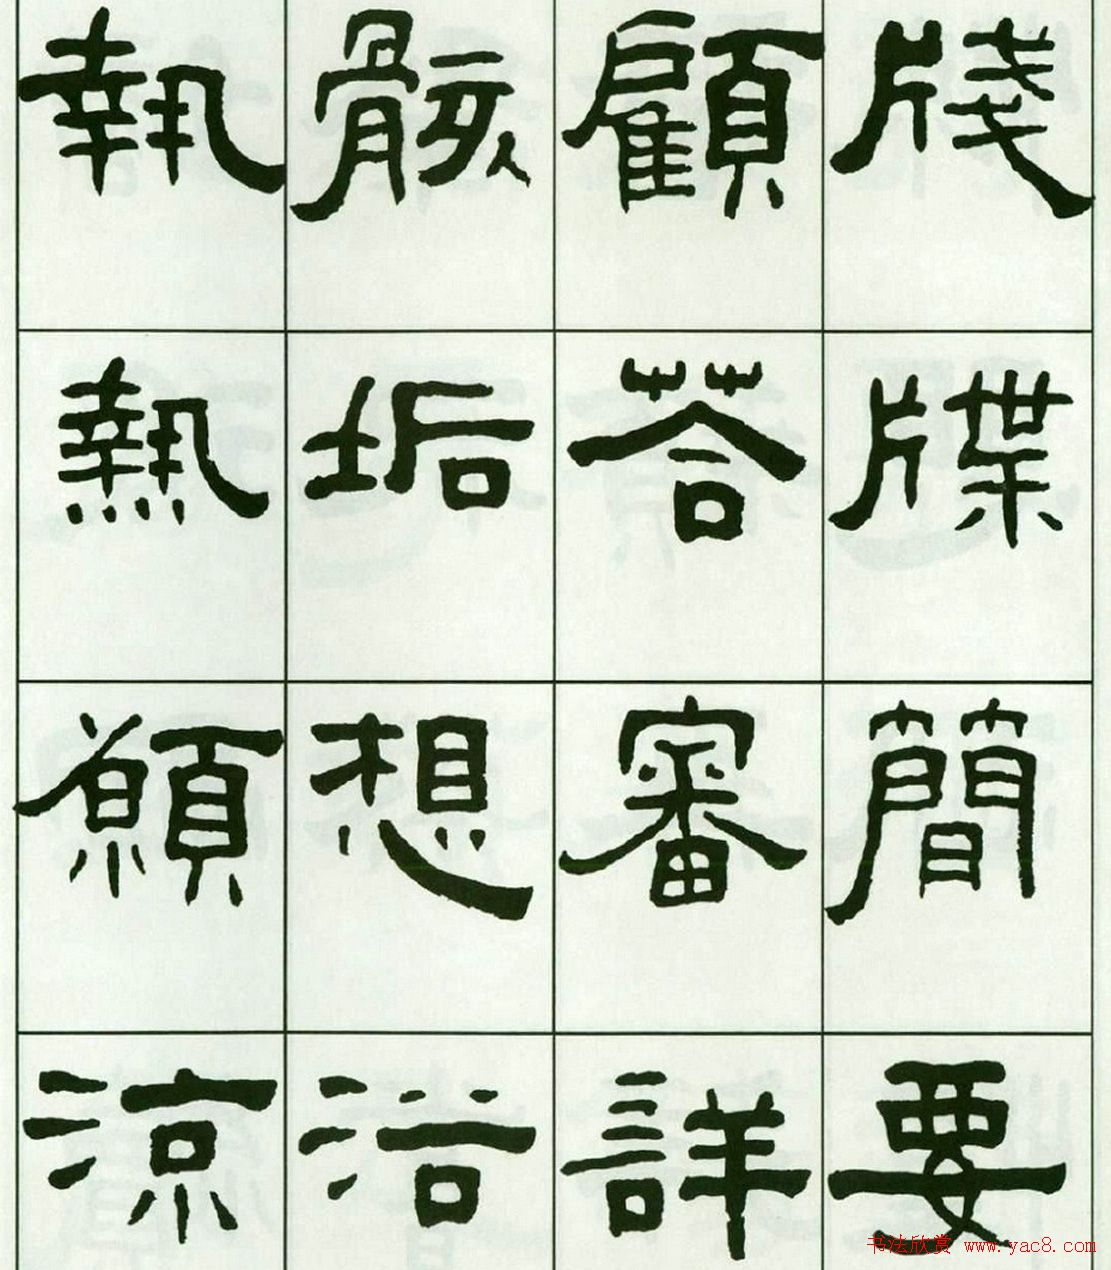 牋牒簡要
顧荅審詳
骸垢想浴
執熱願涼
书法欣赏 www.yac8.com